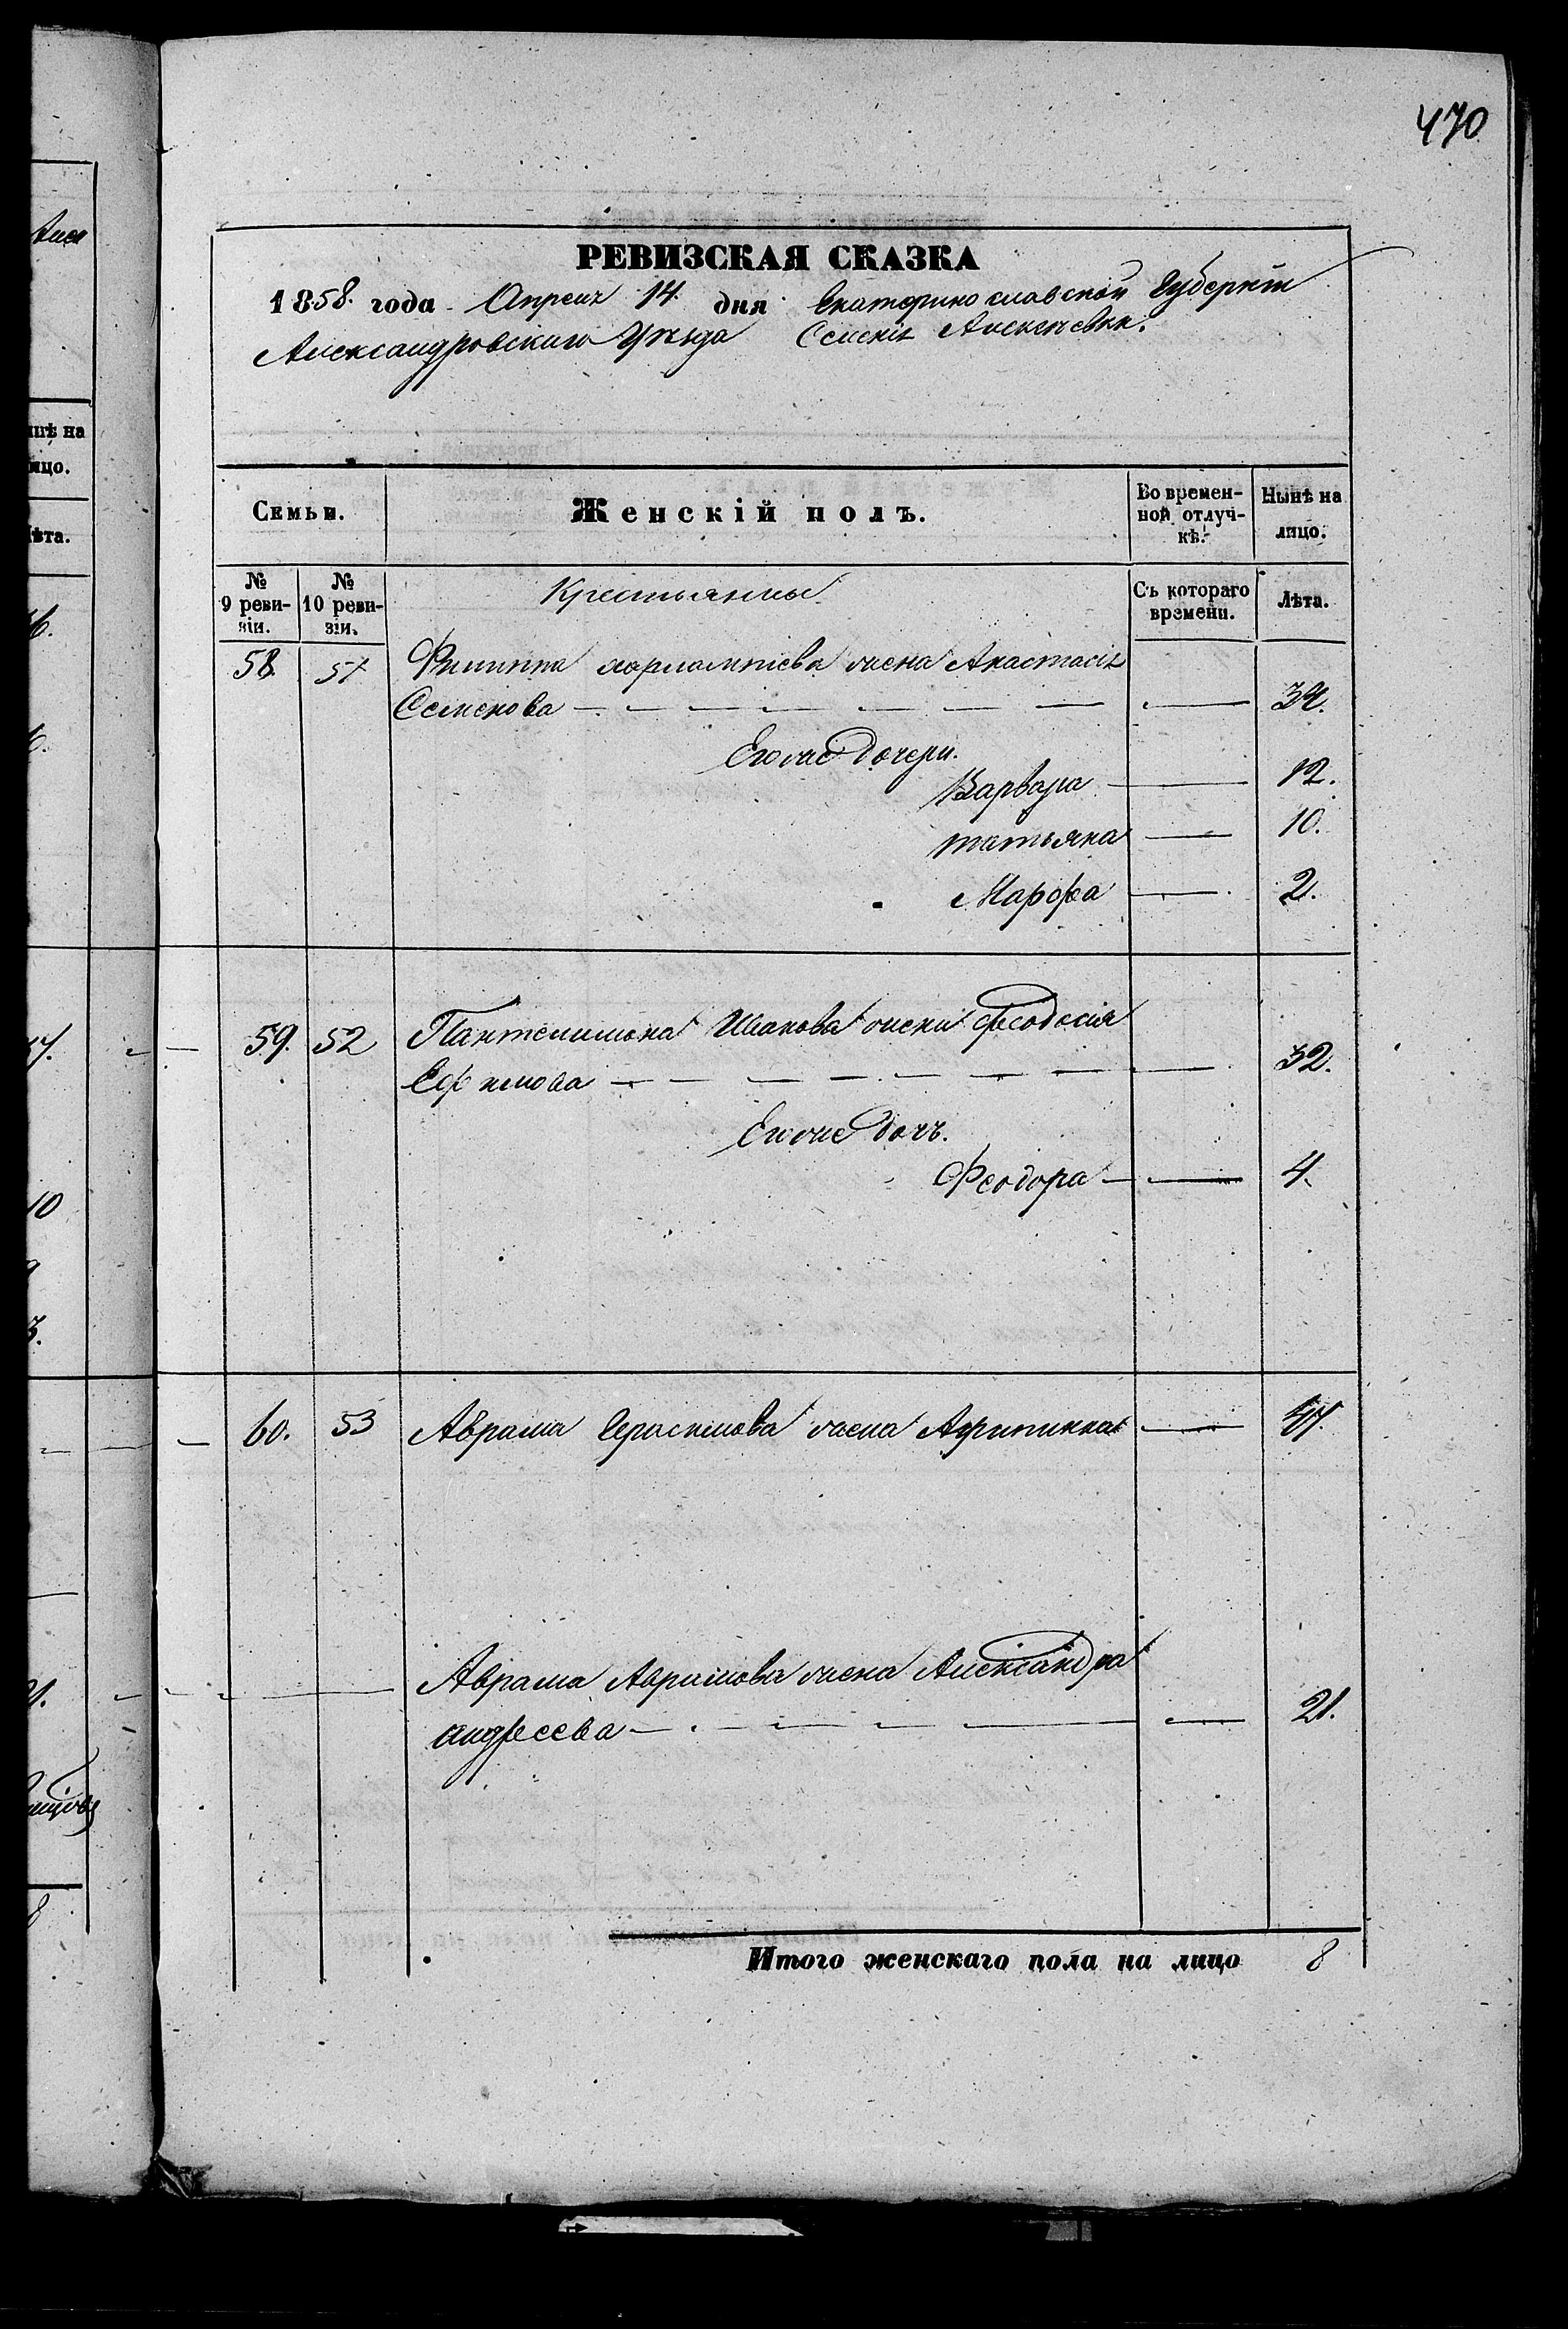 470
РЕВИЗСКАЯ СКАЗКА
1858. года Апреля 14. дня Екатеринославской Губерніи
Александровскаго Уѣзда Селенія Алексѣевки.
Семьи.
Женскій полъ.
Во времен-
ной отлуч-
кѣ.
Нынѣ на
лицо.
№
9 реви-
зіи.
№
10 реви-
зіи.
Крестьяны
Съ котораго
времени.
Лѣта.
58. 51 Филиппа харлампіева жена Анастасія
Семенова 34.
Его же Дочери.
Варвара 12.
татьяна 10.
Марфа 2.
59. 52 Пантелимона Иванова жена феодосія
Ефимова 32.
Его же дочь.
Феодора 4.
60. 53 Аврама Герасимова жена Агрипинна 47.
Аврама Аврамова жена Александра
андреева 21.
Итого женскаго пола на лицо 8
нѣ на
ицо.
ѣта.
10
8